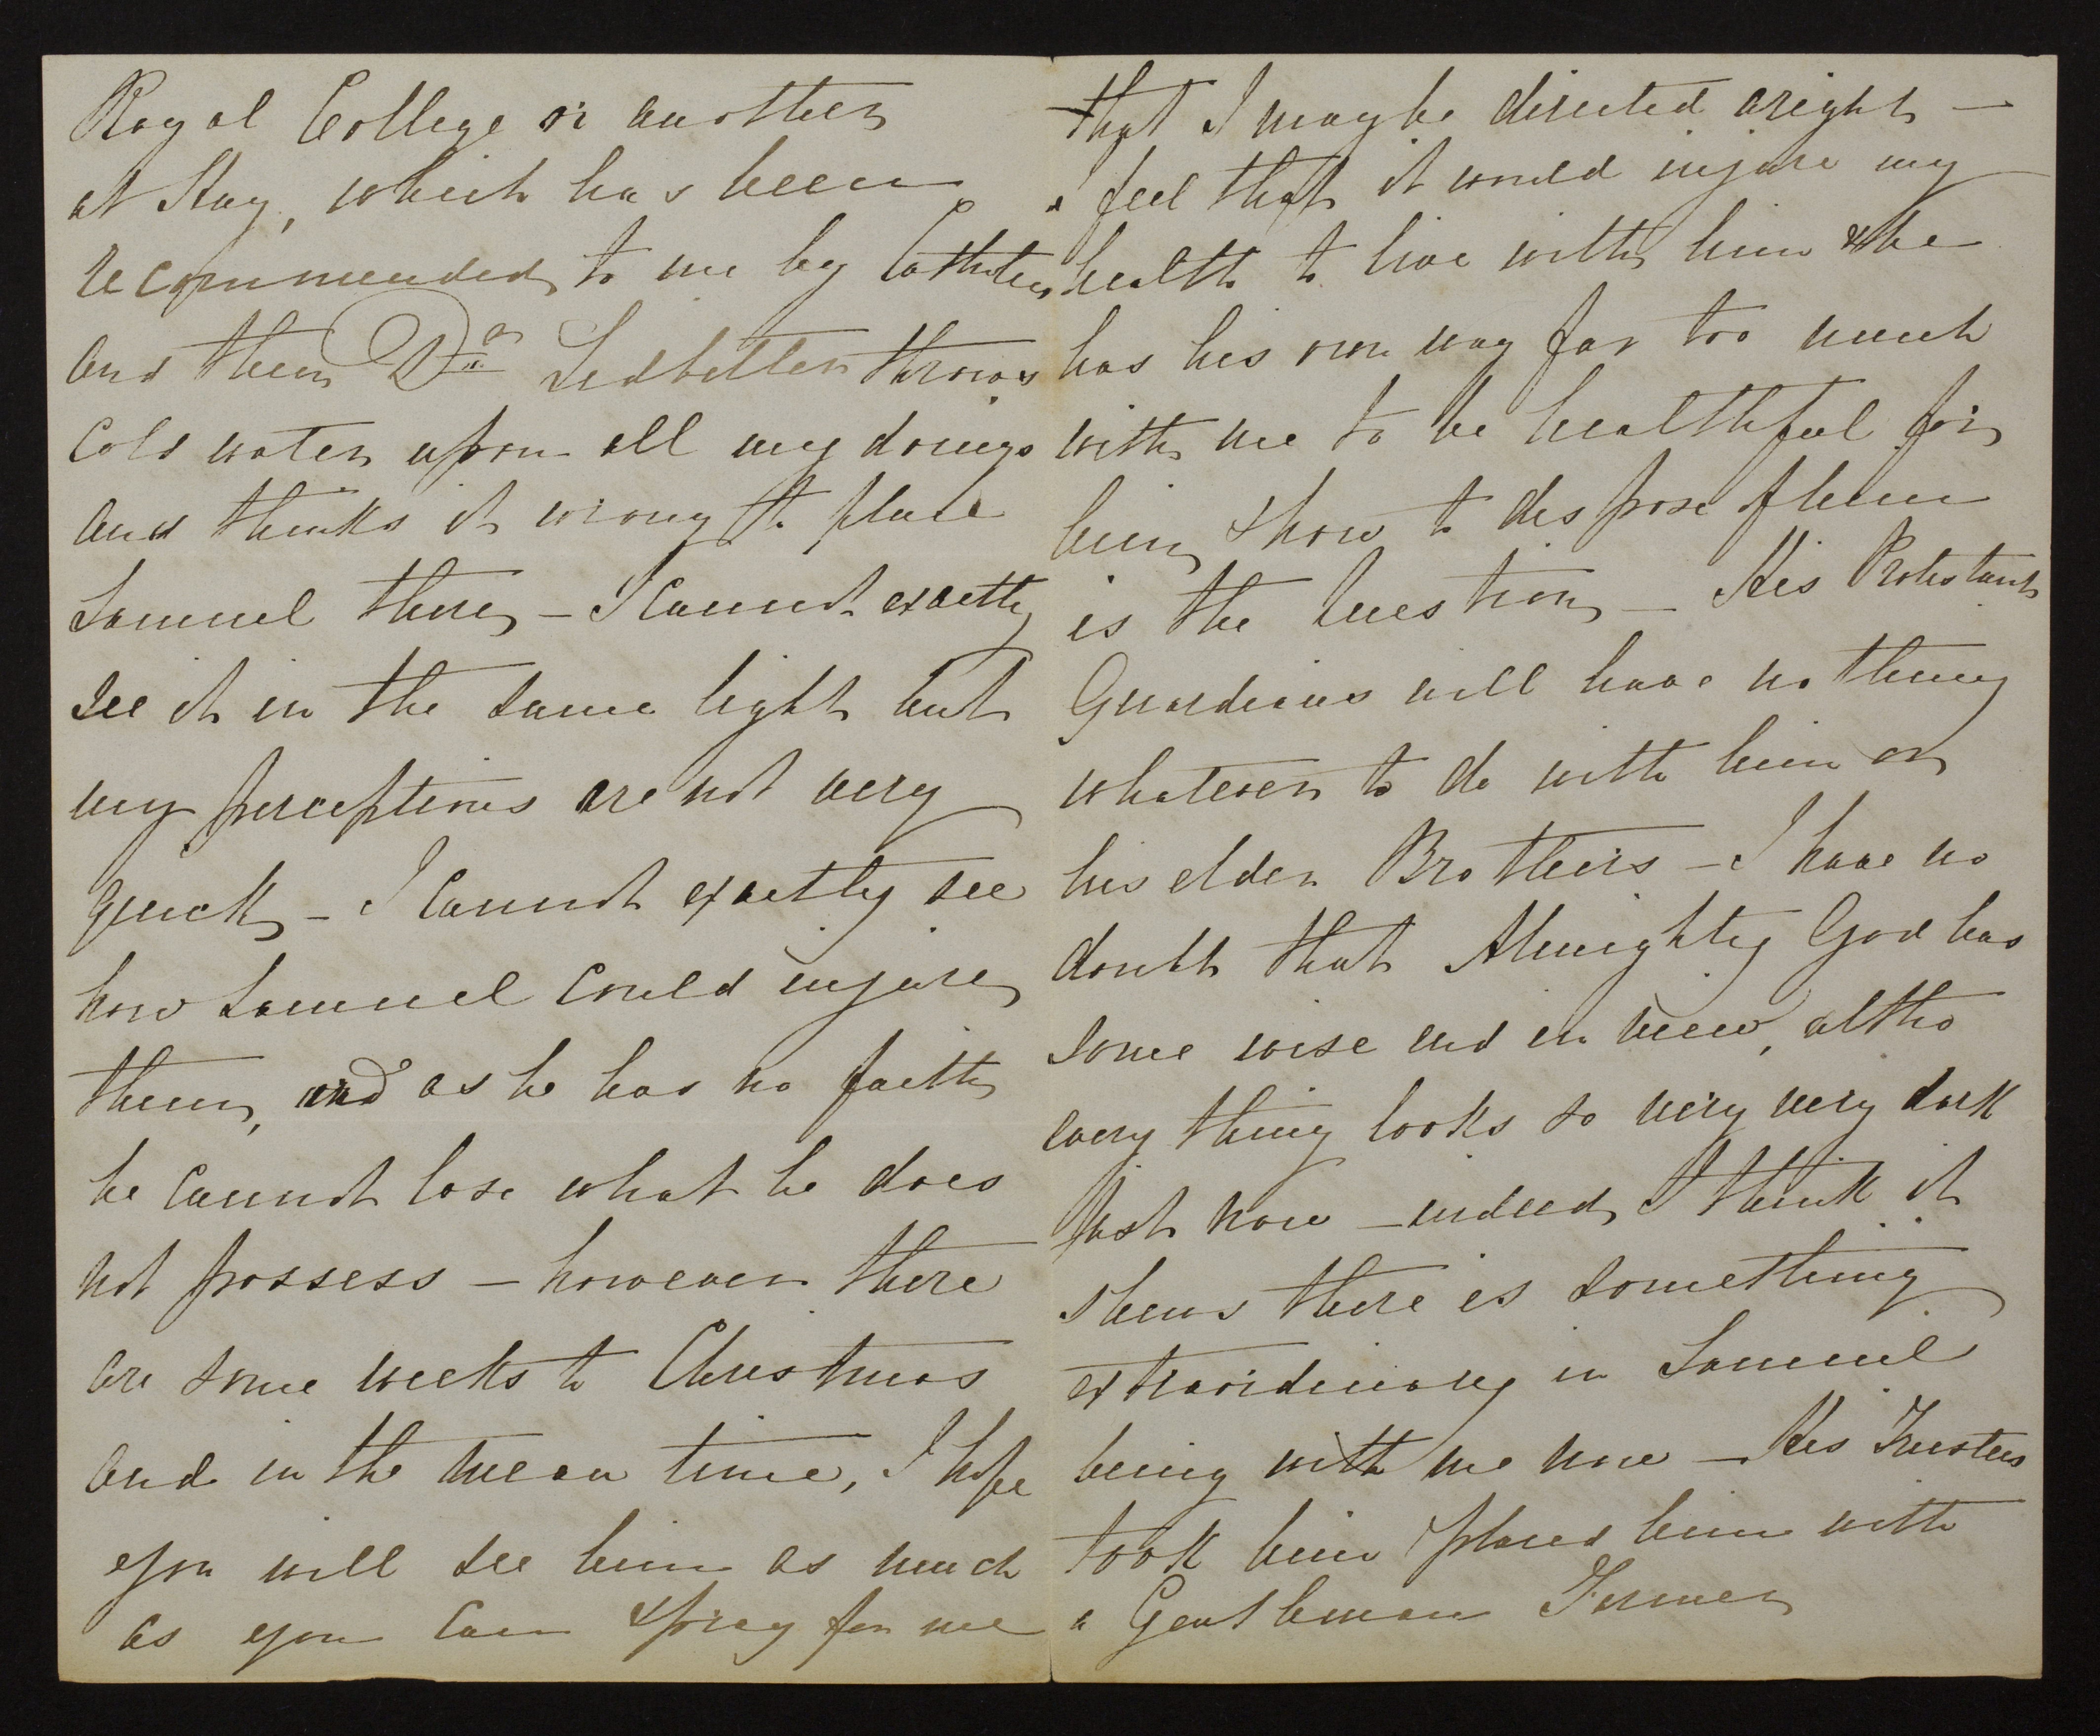 Royal College or another
at Hay, which has been
recommended to me by
and then Dr Ledbetter throws
Cold water upon all my doings
and thinks it wrong to place
Samuel there, - I cannot exactly
see it in the same light but
my perceptions are not very
quick, - I cannot exactly see
how Samuel could injure
them, and as he has no faith
he cannot lose what he does
not possess - however there
are some weeks to Christmas
and in the mean time, I hope
you will see him as much
as you can & pray for me
that I may be directed aright -
I feel that it would injure my
health to live with him & he
has his own way far too much
with me to be healthful for
him, & how to dispose of him
is the Question, - His Protestant
Guardians will have nothing
whatever to do with him or
his elder Brothers - I have no
doubt that Almighty God has
some wise end in view, altho
every thing looks so very very dark
just now - indeed, I think it
shews there is something
extraordinary in Samuel
being with me now - His Trustees
took him & placed him with
a Gentleman Farmer